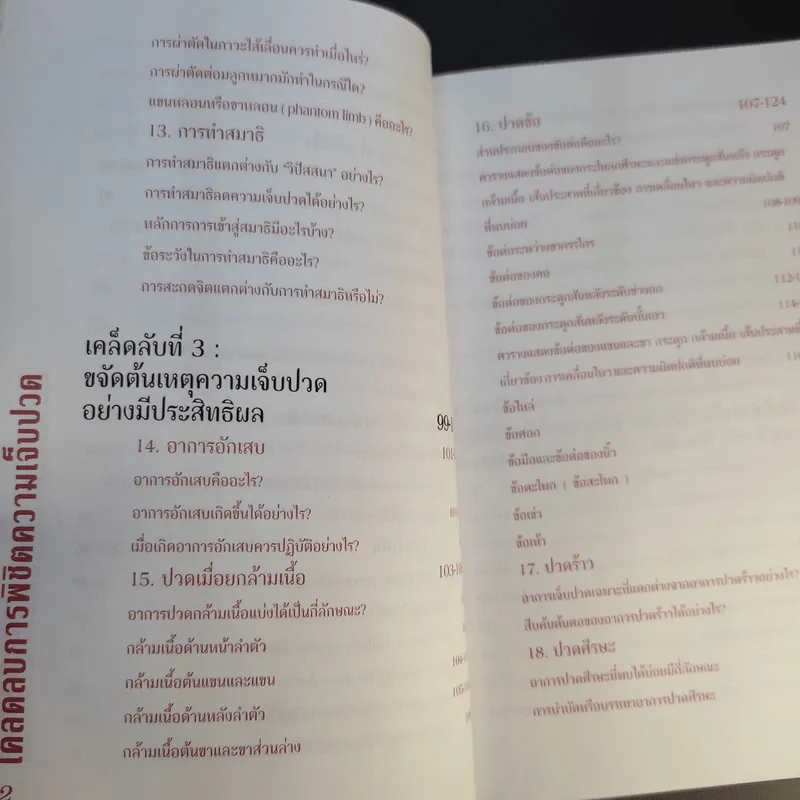 การผ่าตัดในภาวะไส้เลื่อนควรทำเมื่อไหร่?
การผ่าตัดต่อมลูกหมากมักทำในกรณีใด?
แขนหลอนหรือขาหลอน ( phantom limb ) คืออะไร?
13. การทำสมาธิ
การทำสมาธิแตกต่างกับ “วิปัสสนา” อย่างไร?
การทำสมาธิลดความเจ็บปวดได้อย่างไร?
หลักการการเข้าสู่สมาธิมีอะไรบ้าง?
ข้อระวังในการทำสมาธิคืออะไร?
การสะกดจิตแตกต่างกับการทำสมาธิหรือไม่?
เคล็ดลับที่ 3 :
ขจัดต้นเหตุความเจ็บปวด
อย่างมีประสิทธิผล
99-1
14. อาการอักเสบ
101-
อาการอักเสบคืออะไร?
อาการอักเสบเกิดขึ้นได้อย่างไร?
เมื่อเกิดอาการอักเสบควรปฏิบัติอย่างไร?
15. ปวดเมื่อยกล้ามเนื้อ
103-10
อาการปวดกล้ามเนื้อแบ่งได้เป็นกี่ลักษณะ?
กล้ามเนื้อด้านหน้าลำตัว
กล้ามเนื้อต้นแขนและแขน
104-
กล้ามเนื้อด้านหลังลำตัว
105-
กล้ามเนื้อต้นขาและขาส่วนล่าง
เคล็ดลับการพิชิตความเจ็บปวด
2
16. ปวดข้อ
107-124
ส่วนประกอบของข้อต่อคืออะไร?
107
ตารางแสดงข้อต่อของกระโหลกศีรษะและแนวกระดูกสันหลัง กระดูก
กล้ามเนื้อ เส้นประสาทที่เกี่ยวข้อง การเคลื่อนไหว และความผิดปกติ
ที่พบบ่อย
108-109
ข้อต่อระหว่างขากรรไกร
11
ข้อต่อของคอ
11
ข้อต่อของกระดูกสันหลังระดับช่วงอก
112-1
ข้อต่อของกระดูกสันหลังระดับบั้นเอว
114-
ตารางแสดงข้อต่อของแขนและขา กระดูก กล้ามเนื้อ เส้นประสาทที่
เกี่ยวข้อง การเคลื่อนไหว และความผิดปกติที่พบบ่อย
116
ข้อไหล่
ข้อศอก
ข้อมือและข้อต่อของนิ้ว
ข้อตะโพก ( ข้อสะโพก )
ข้อเข่า
ข้อเท้า
17. ปวดร้าว
อาการเจ็บปวดเฉพาะที่แตกต่างจากอาการปวดร้าวอย่างไร?
สืบค้นต้นตอของอาการปวดร้าวได้อย่างไร?
18. ปวดศีรษะ
อาการปวดศีรษะที่พบได้บ่อยมีกี่ลักษณะ
การบำบัดหรือบรรเทาอาการปวดศีรษะ